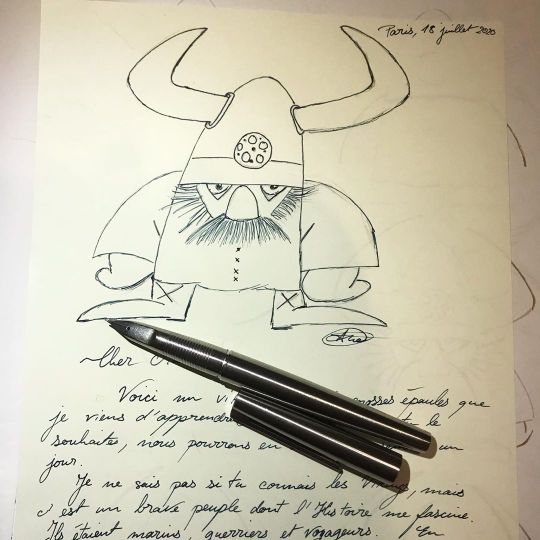 Paris, 18 juillet 2020
~Cher
Voici un grosses épaules que
je viens d'apprendre tu le
souhaites, nous pourrons en un
jour.
Je ne sais pas si tu connais les Vikings, mais
c'est un brave peuple dont l'Histoire me fascine.
Ils étaient marins, guerriers et voyageurs. En